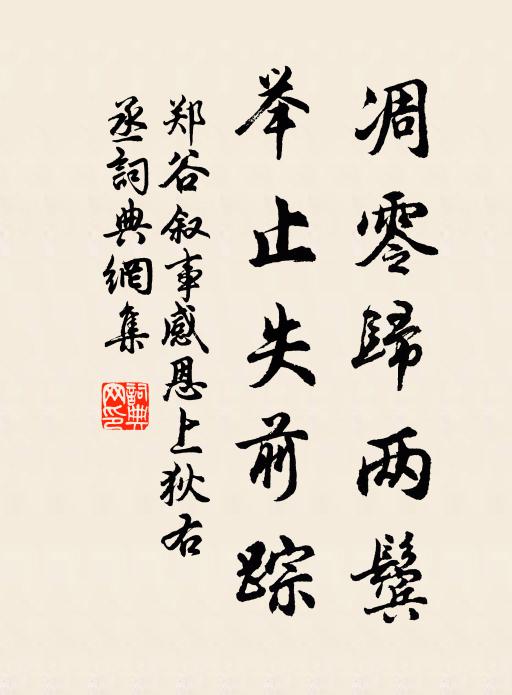 凋零歸两鬓
举止失前踪
郑谷叙事感恩上狄右
丞詞典網集
詞典網印